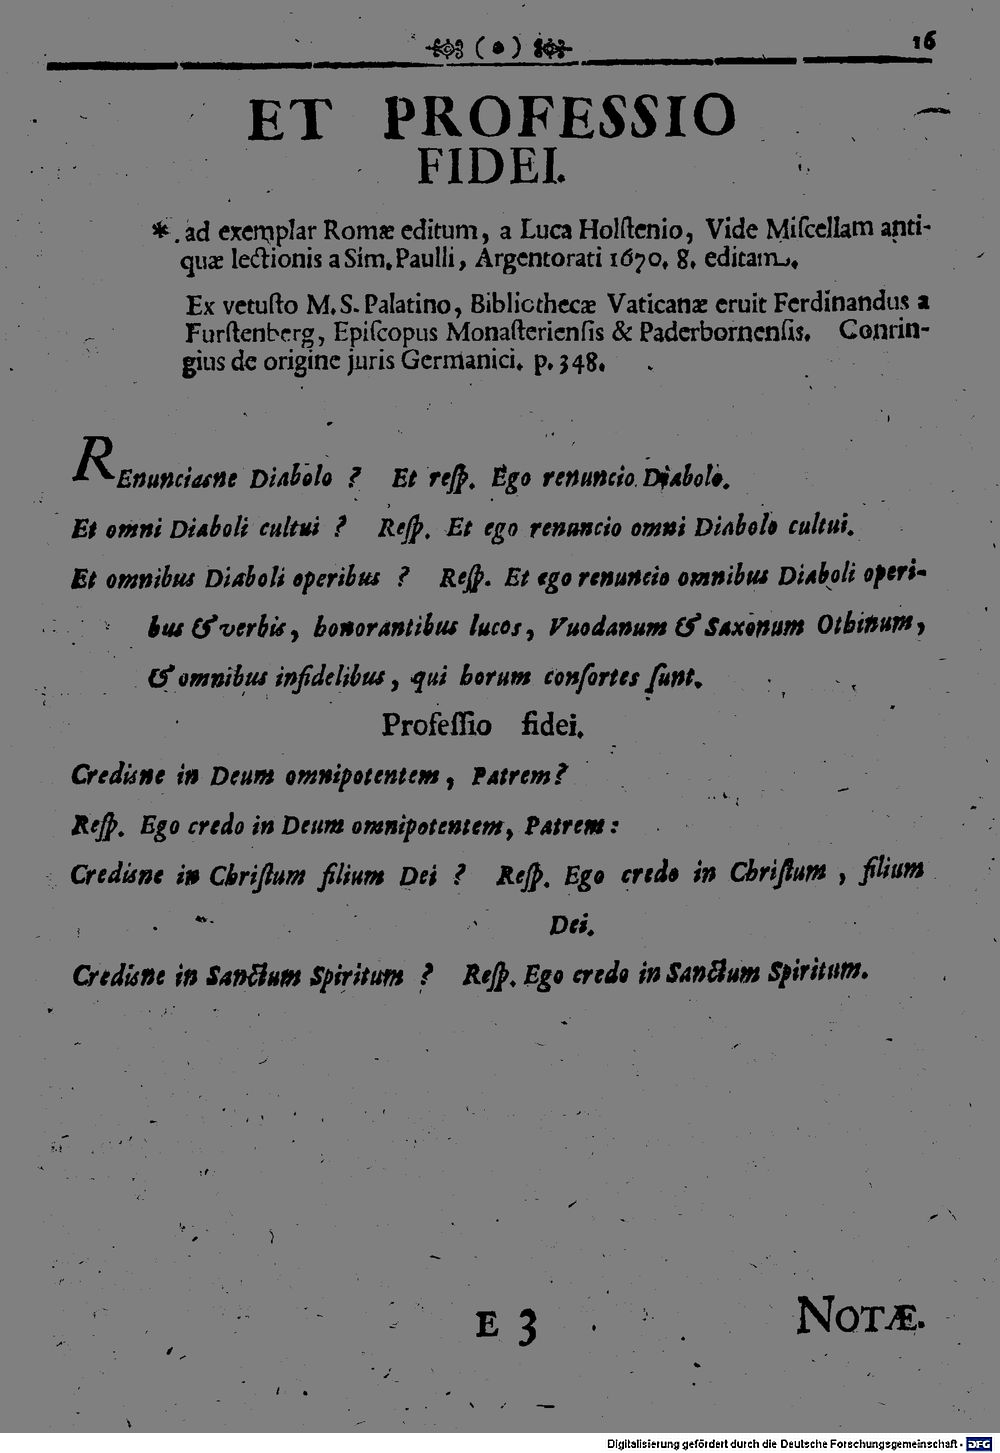 ( ) 16
ET PROFESSIO
FIDEI.
*. ad exemplar Romæ editum, a Luca Holſtenio, Vide Miſcellam anti-
quæ lectionis a Sim. Paulli, Argentorati 1670. 8. editam.
Ex vetuſto M. S. Palatino, Bibliothecæ Vaticanæ eruit Ferdinandus a
Furſtenberg, Epiſcopus Monaſterienſis & Paderbornenſis. Conrin-
gius de origine juris Germanici. p. 348.
REnunciasne Diabolo ? Et reſp. Ego renuncio Diabolo.
Et omni Diaboli cultui ? Reſp. Et ego renuncio omni Diabolo cultui.
Et omnibus Diaboli operibus ? Reſp. Et ego renuncio omnibus Diaboli operi-
bus & verbis, honorantibus lucos, Vuodanum & Saxonum Othinum,
& omnibus infidelibus, qui horum conſortes ſunt.
Profeſſio fidei.
Credisne in Deum omnipotentem, Patrem?
Reſp. Ego credo in Deum omnipotentem, Patrem:
Credisne in Chriſtum filium Dei ? Reſp. Ego credo in Chriſtum, filium
Dei.
Credisne in Sanctum Spiritum ? Reſp. Ego credo in Sanctum Spiritum.
E 3 NOTÆ.
Digitalisierung gefördert durch die Deutsche Forschungsgemeinschaft - DFG